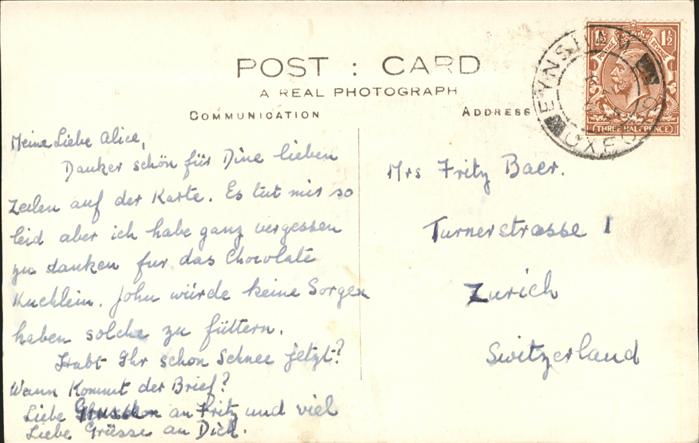 POST : CARD
A REAL PHOTOGRAPH
COMMUNICATION
ADDRESS
Meine Liebe Alice,
Danker schön für Dine lieben
Zeilen auf der Karte. Es tut mir so
leid aber ich habe ganz vergessen
zu danken fur das Chocolate
Kuchlein. John würde keine Sorgen
haben solche zu füttern.
Habt Ihr schon Schnee jetzt?
Wann Kommt der Brief?
Liebe an Fritz und viel
Liebe Grüsse an Dich.
Mrs Fritz Baer.
Turnerstrasse 1
Zurich
Switzerland
EYNSHAM
OXFO
1½ 1½
THREE HALFPENCE